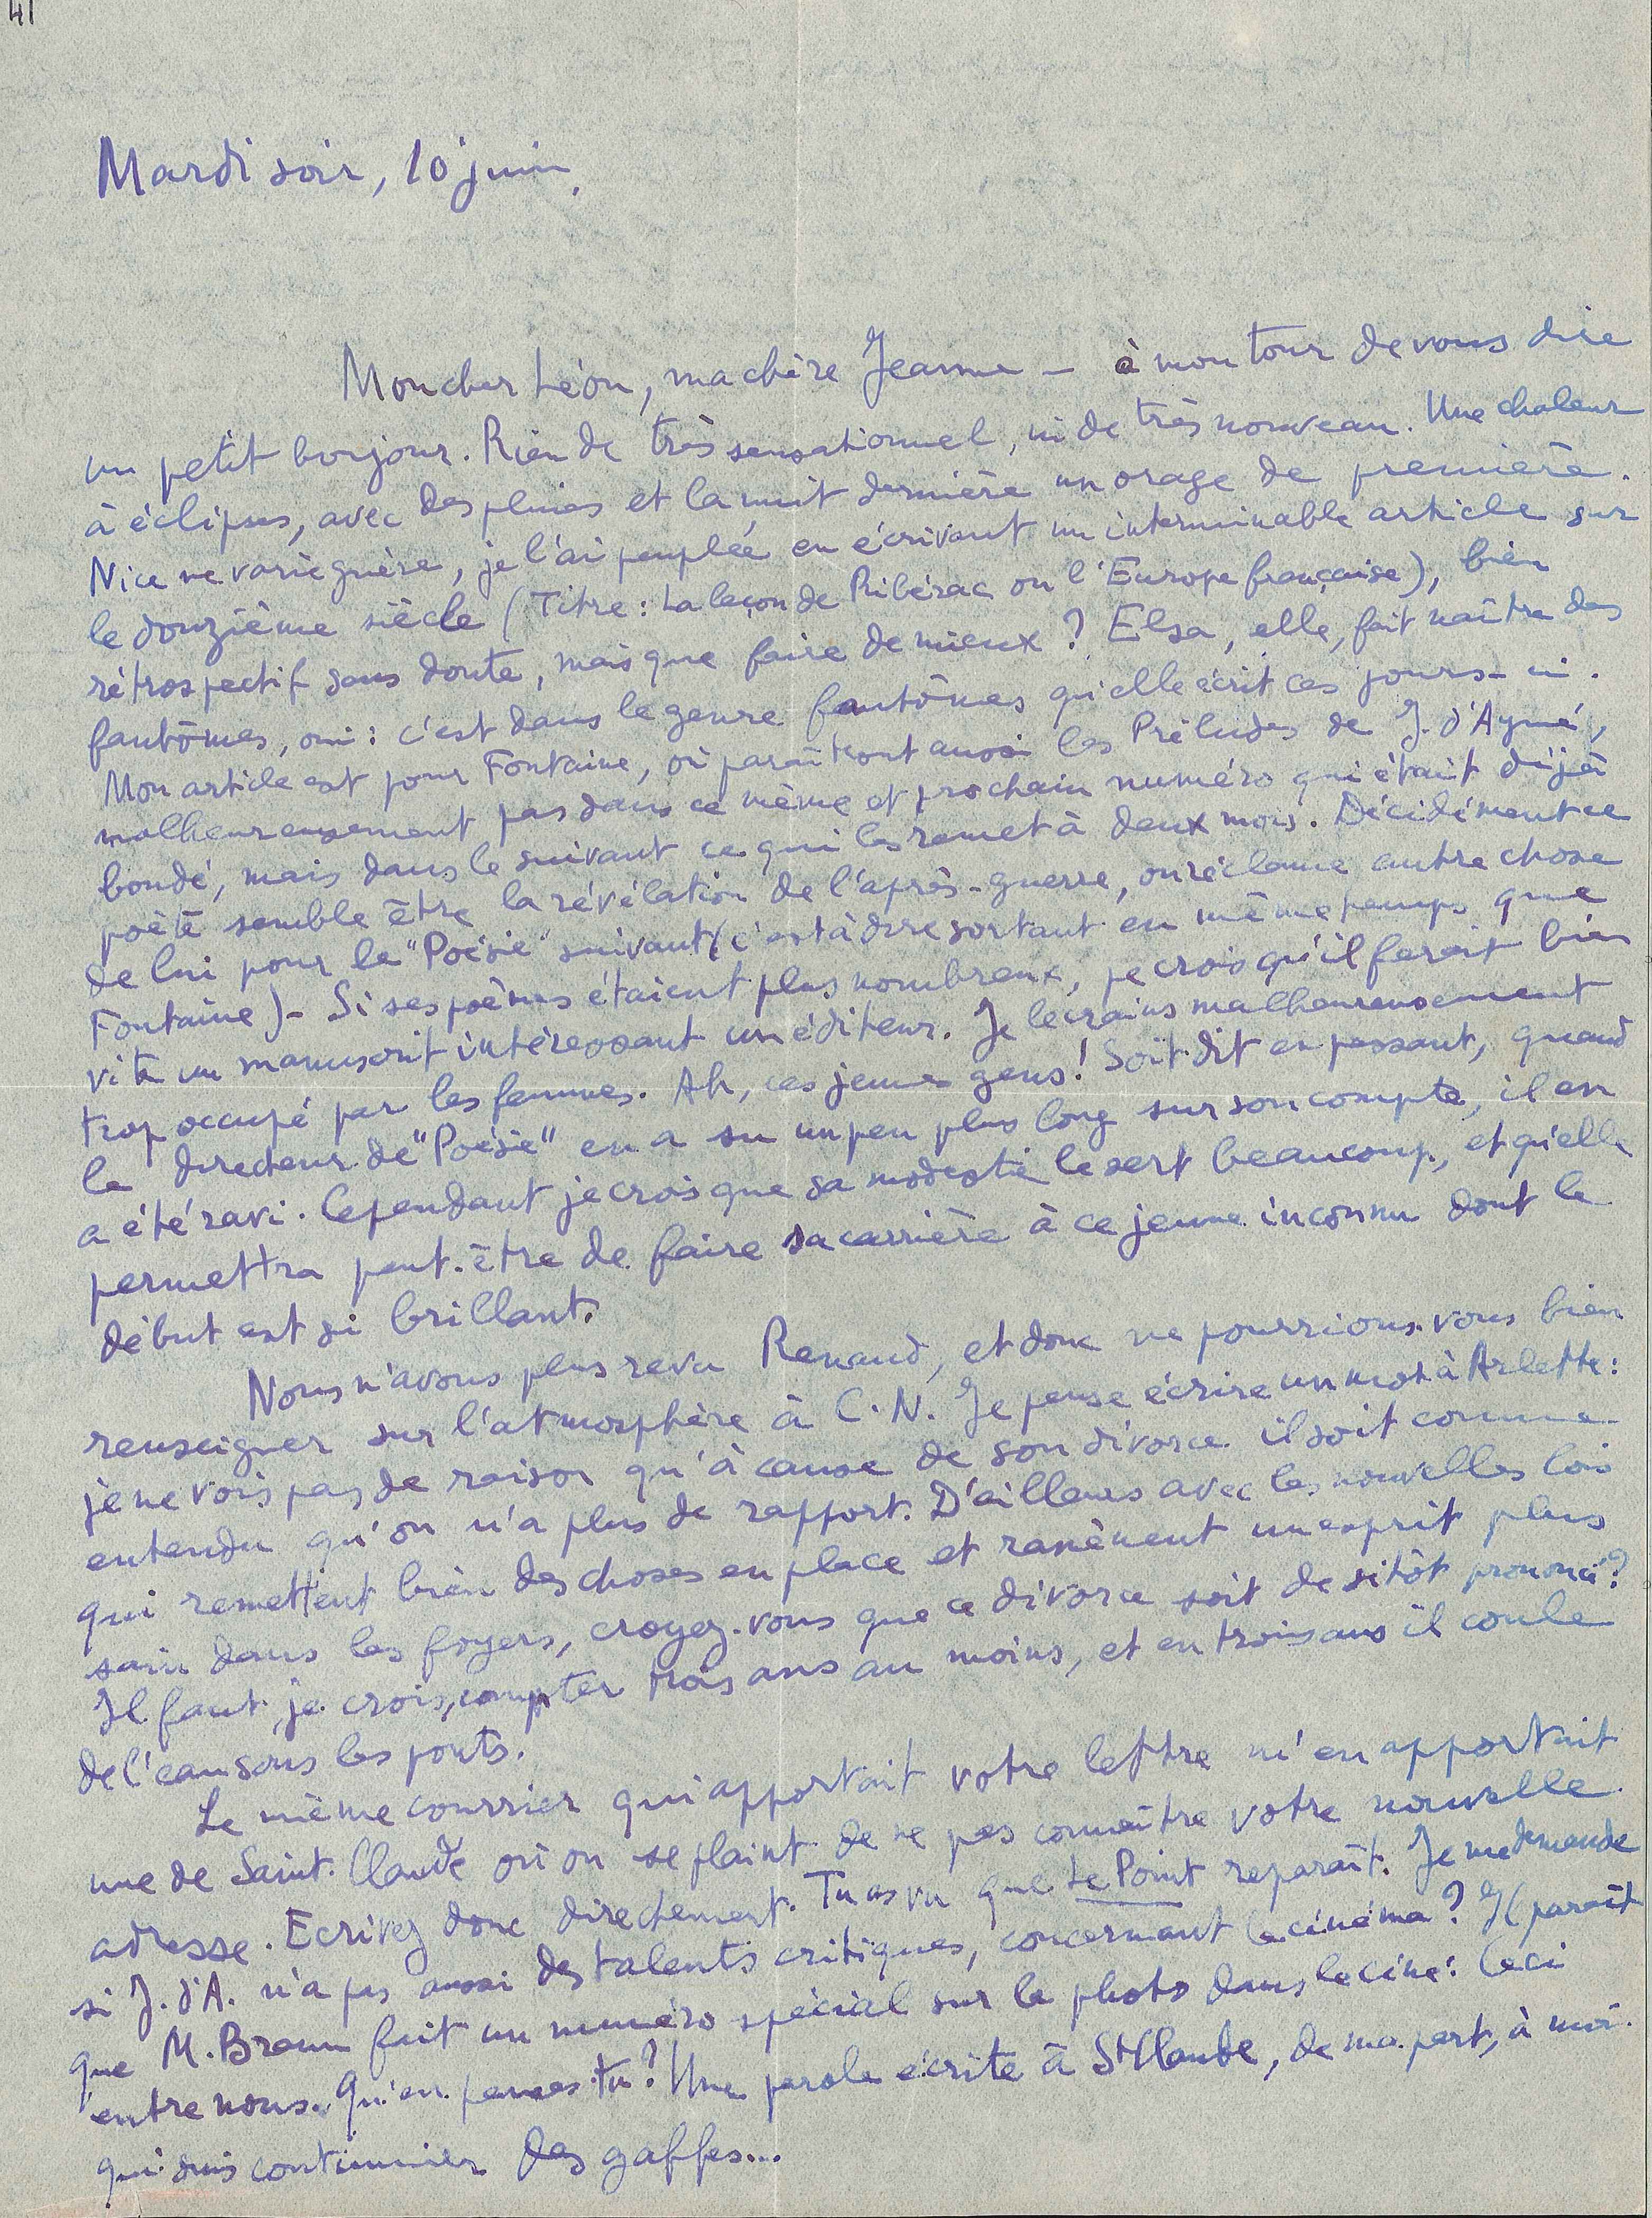 41
Mardi soir, 10 juin.
Mon cher Léon, ma chère Jeanne – à mon tour de vous dire
un petit bonjour. Rien de très sensationnel, ni de très nouveau. Une chaleur
à éclipses, avec des pluies et la nuit dernière un orage de première.
Nice ne varie guère, je l'ai peuplée en écrivant un interminable article sur
le douzième siècle (Titre : La leçon de Ribérac ou l'Europe française), bien
rétrospectif sans doute, mais que faire de mieux ? Elsa, elle, fait naître des
fantômes, oui : c'est dans le genre fantômes qu'elle écrit ces jours-ci.
Mon article est pour Fontaine, où paraîtront aussi les Préludes de J. d'Aymé,
malheureusement pas dans ce même et prochain numéro qui était déjà
bondé, mais dans le suivant ce qui les remet à deux mois. Décidément ce
poète semble être la révélation de l'après-guerre, on réclame autre chose
de lui pour le "Poésie" suivant (c'est à dire sortant en même temps que
Fontaine) – Si ses poèmes étaient plus nombreux, je crois qu'il ferait bien
vite un manuscrit intéressant un éditeur. Je le crains malheureusement
trop occupé par les femmes. Ah, ces jeunes gens ! Soit dit en passant, quand
le directeur de "Poésie" en a su un peu plus long sur son compte, il en
a été ravi. Cependant je crois que sa modestie le sert beaucoup, et qu'elle
permettra peut-être de faire sa carrière à ce jeune inconnu dont le
début est si brillant.
Nous n'avons plus revu Renaud, et donc ne pourrions vous bien
renseigner sur l'atmosphère à C.N. Je pense écrire un mot à Arlette :
je ne vois pas de raison qu'à cause de son divorce il soit comme
entendu qu'on n'a plus de rapport. D'ailleurs avec les nouvelles lois
qui remettent bien des choses en place et ramènent un esprit plus
sain dans les foyers, croyez-vous que ce divorce soit de sitôt prononcé ?
Il faut, je crois, compter trois ans au moins, et en trois ans il coule
de l'eau sous les ponts.
Le même courrier qui apportait votre lettre m'en apportait
une de Saint-Claude où on se plaint de ne pas connaître votre nouvelle
adresse. Ecrivez donc directement. Tu as vu que Le Point reparaît. Je me demande
si J. d'A. n'a pas aussi des talents critiques, concernant le cinéma ? Il paraît
que M. Braun fait un numéro spécial sur la photo dans le ciné. Ceci
entre nous. Qu'en penses-tu ? Une parole écrite à St Claude, de ma part, à moi
qui suis coutumier des gaffes...